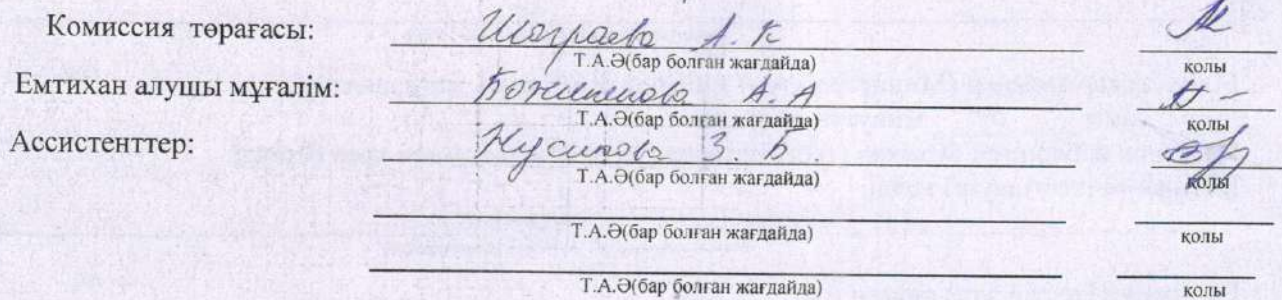 Комиссия төрағасы: Шаграева А. К
Т.А.Ә(бар болған жағдайда) қолы
Емтихан алушы мұғалім: А. А
Т.А.Ә(бар болған жағдайда) қолы
Ассистенттер: Нусипова З. Б.
Т.А.Ә(бар болған жағдайда) қолы
Т.А.Ә(бар болған жағдайда) қолы
Т.А.Ә(бар болған жағдайда) қолы